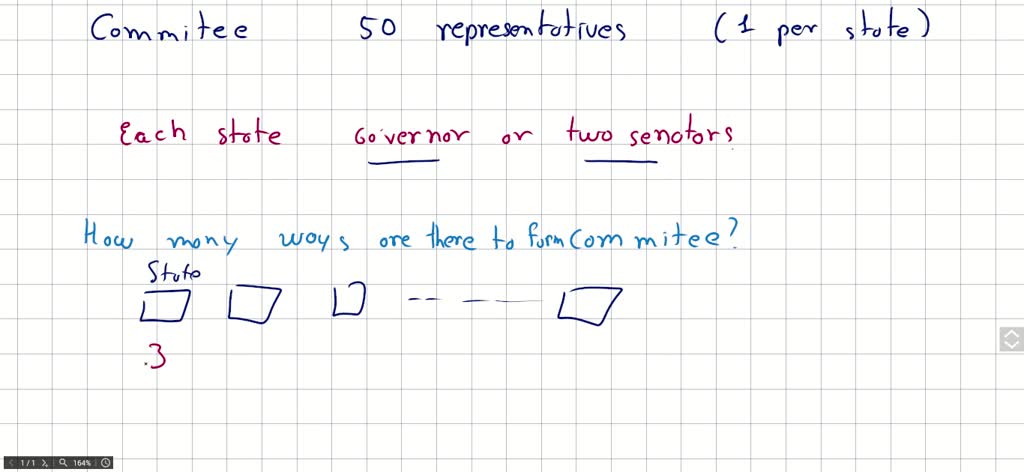 Commitee 50 representatives (1 per state)
Each state Governor or two senators
How many ways are there to form Commitee?
State
.3
1/1 164%